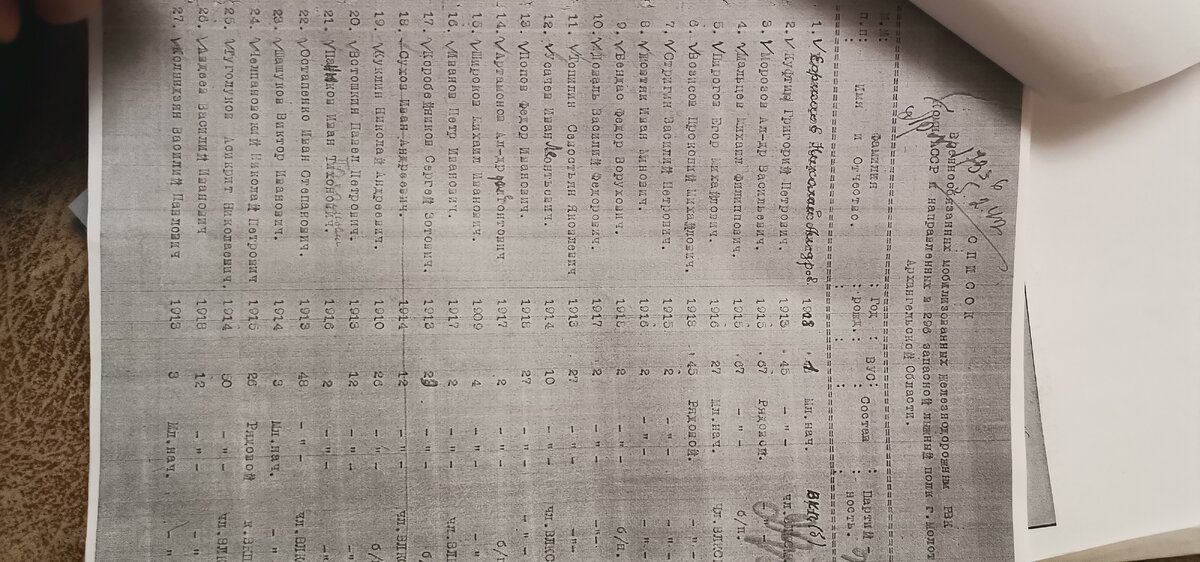 С П И С О К
Военнообязанных мобилизованных Железнодорожным РВК
Коми АССР и направленных в 296 запасной лыжный полк г.Молот
Архангельской Области.
№№ : Фамилия : Год : ВУС: Состав : Партий-
п.п: Имя и Отчество. : рожд. : : : ность.
1. Николай 1918 1 Мл.нач. ВКП(б)
2. Куфтин Григорий Петрович. 1913 45 -"- чл.
3. Морозов Ал-др Васильевич. 1915 67 Рядовой.
4. Мальцев Михаил Филиппович. 1915 67 -"- б/п.
5. Пирогов Егор Михайлович. 1916 27 Мл.нач. чл.ВЛКС
6. Возисов Прокопий Михайлович. 1918 45 Рядовой. -"-
7. Стригин Василий Петрович. 1915 2 -"- -"-
8. Жовтяк Иван Минович. 1916 2 -"- -"-
9. Бендас Федор Борухович. 2 -"- б/п.
10. Коваль Василий Федорович. 1917 2 -"- -"-
11. Топилин Севостьян Яковлевич 1913 27 -"- -"-
12. Усачев Иван Леонтьевич. 1914 10 -"- чл.ВЛКС
13. Попов Федор Иванович. 1918 27 -"- -"-
14. Артамонов Ал-др 1917 2 -"- б/п
15. Широков Михаил Иванович. 1909 4 -"- -"-
16. Иванов Петр Иванович. 1917 2 -"- чл.ВЛ
17. Коробейников Сергей Зотович. 1913 29 -"- б/
18. Сухов Иван Андреевич. 1914 12 -"- чл.ВЛКО
19. Кукин Николай Андреевич. 1910 26 -"- б/
20. Вотошкин Павел Петрович. 1913 12 -"- -"
21. Иван Тихонович 1916 2 -"- -"
22. Остапенко Иван Степанович. 1913 48 -"- чл.ВЛК
23. Пашуков Виктор Иванович. 1914 3 Мл.нач. -"
24. Чемпановский Николай Петрович 1915 26 Рядовой к.ВКП
25. Туголуков Асикрит Николаевич. 1914 50 -"- чл.ВЛК
26. Авдеев Василий Иванович 1918 12 -"- -"
27. Колиндзян Василий Павлович 1913 3 Мл.нач. -"